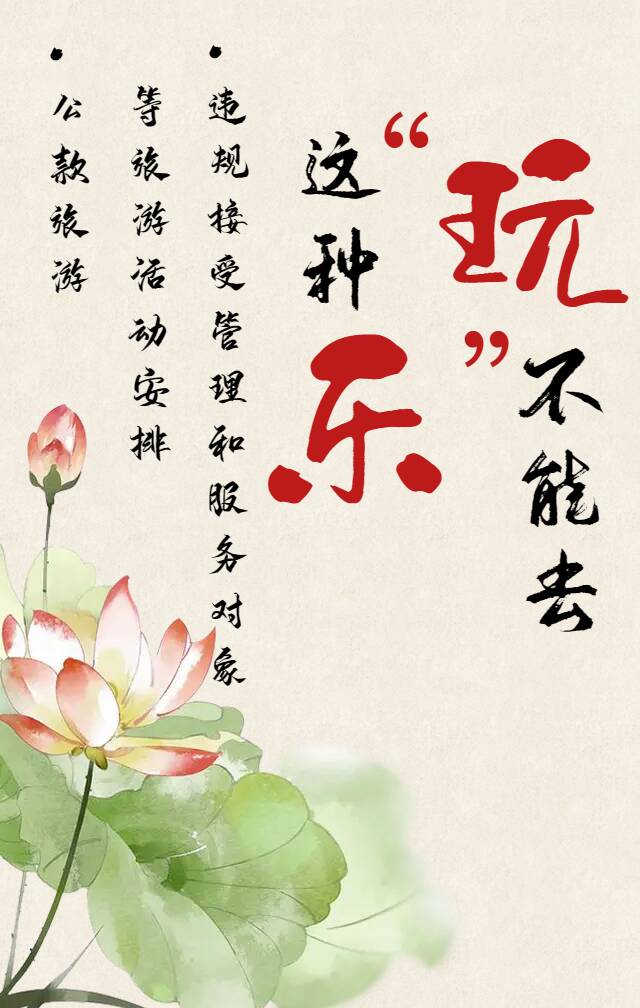 这种乐
“玩”不能去
•违规接受管理和服务对象
等旅游活动安排
•公款旅游